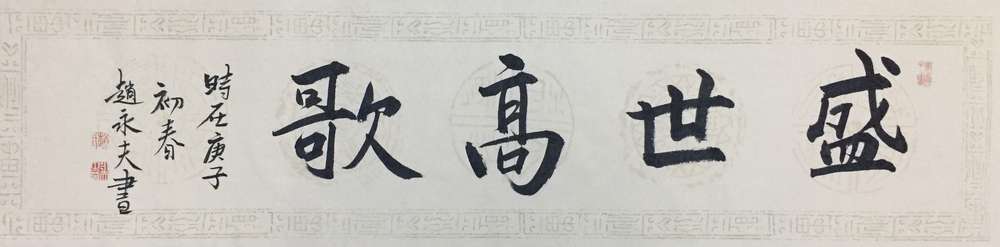 盛世髙歌
時在庚子
初春
趙永夫書